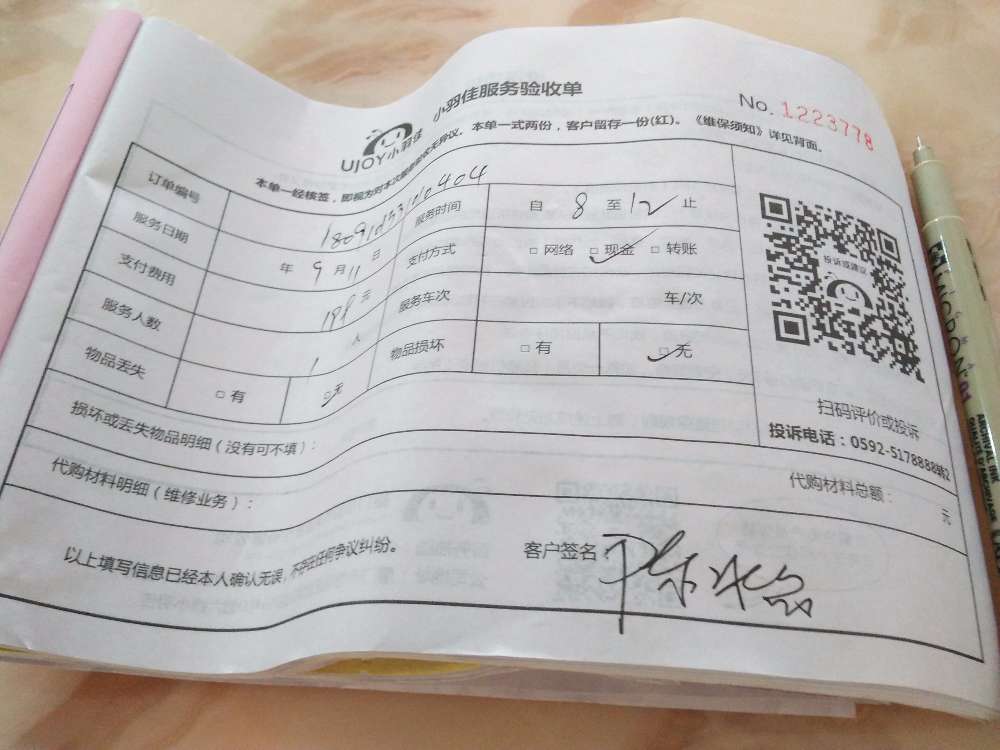 小羽佳服务验收单
No. 1223778
UJOY小羽佳
本单一式两份，客户留存一份(红)。《维保须知》详见背面。
订单编号
服务日期 年 9 月 11 日 服务时间 自 8 至 12 止
支付费用 198 元 支付方式 □ 网络 □ 现金 □ 转账
服务人数 1 人 服务车次 车/次
物品丢失 □ 有 □ 无 物品损坏 □ 有 □ 无
投诉或建议
扫码评价或投诉
投诉电话：0592-5178888转2
损坏或丢失物品明细（没有可不填）：
代购材料明细（维修业务）： 代购材料总额： 元
以上填写信息已经本人确认无误，不存在任何争议纠纷。 客户签名：
MICRON
ARCHIVAL INK